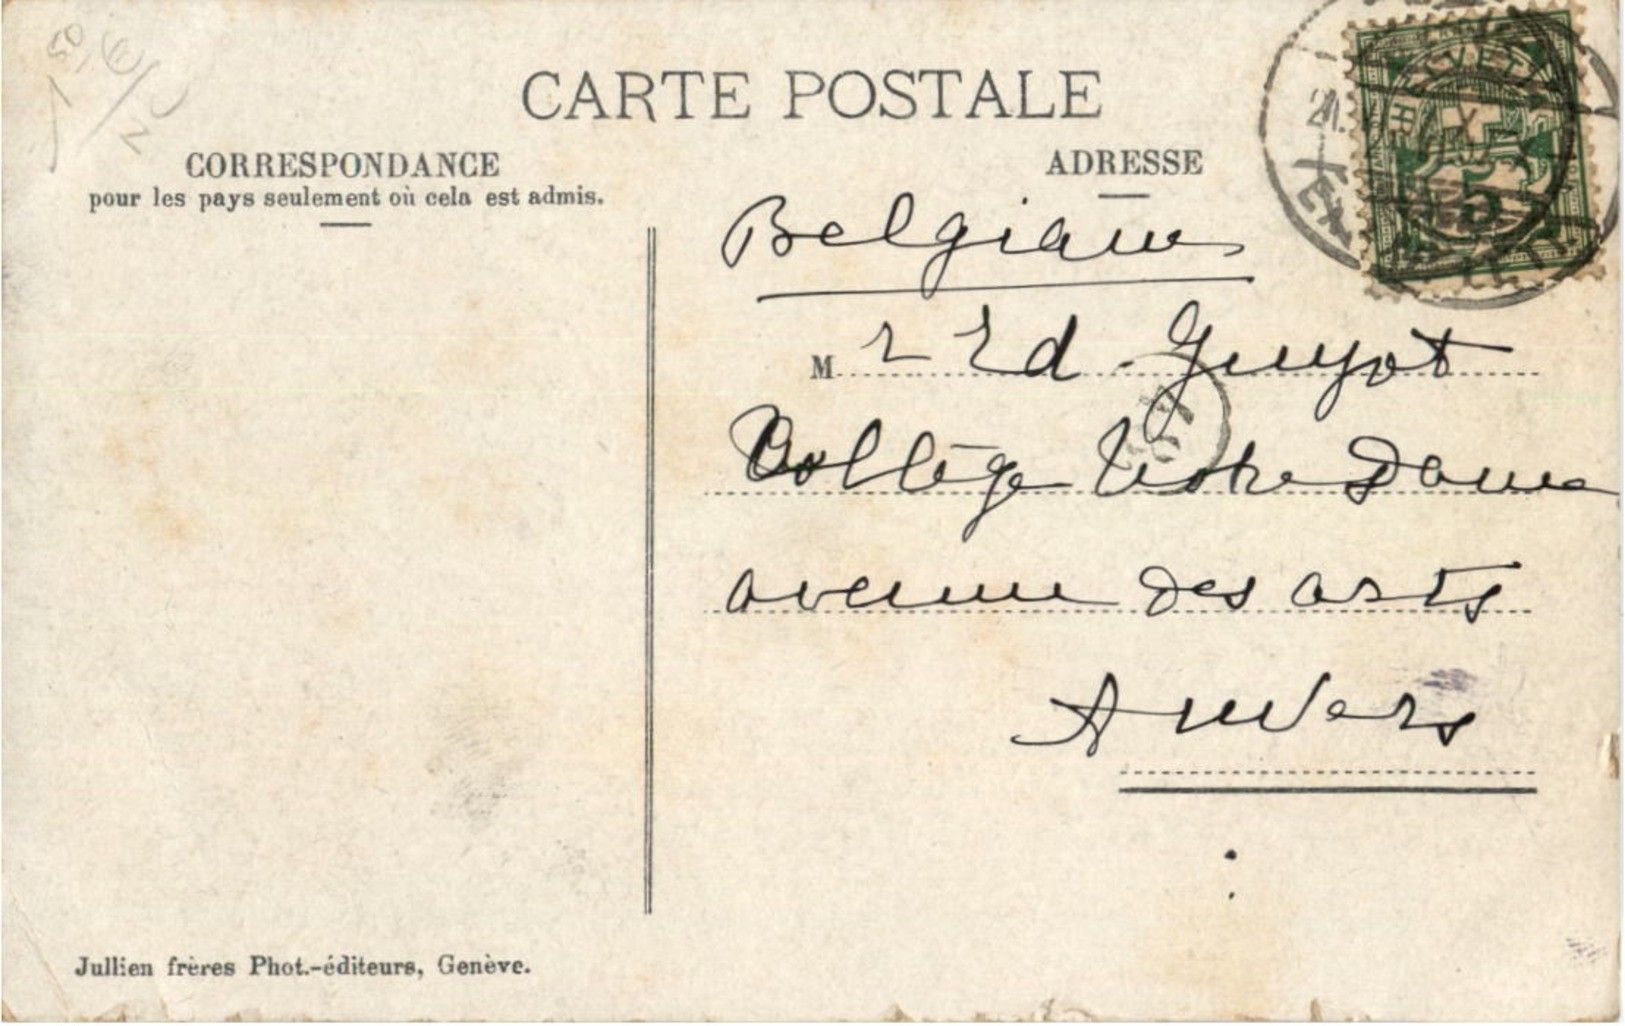 CARTE POSTALE
CORRESPONDANCE
pour les pays seulement où cela est admis.
ADRESSE
M r Ed. Guyot
Collège Notre Dame
avenue des arts
Anvers
Jullien frères Phot.-éditeurs, Genève.
5